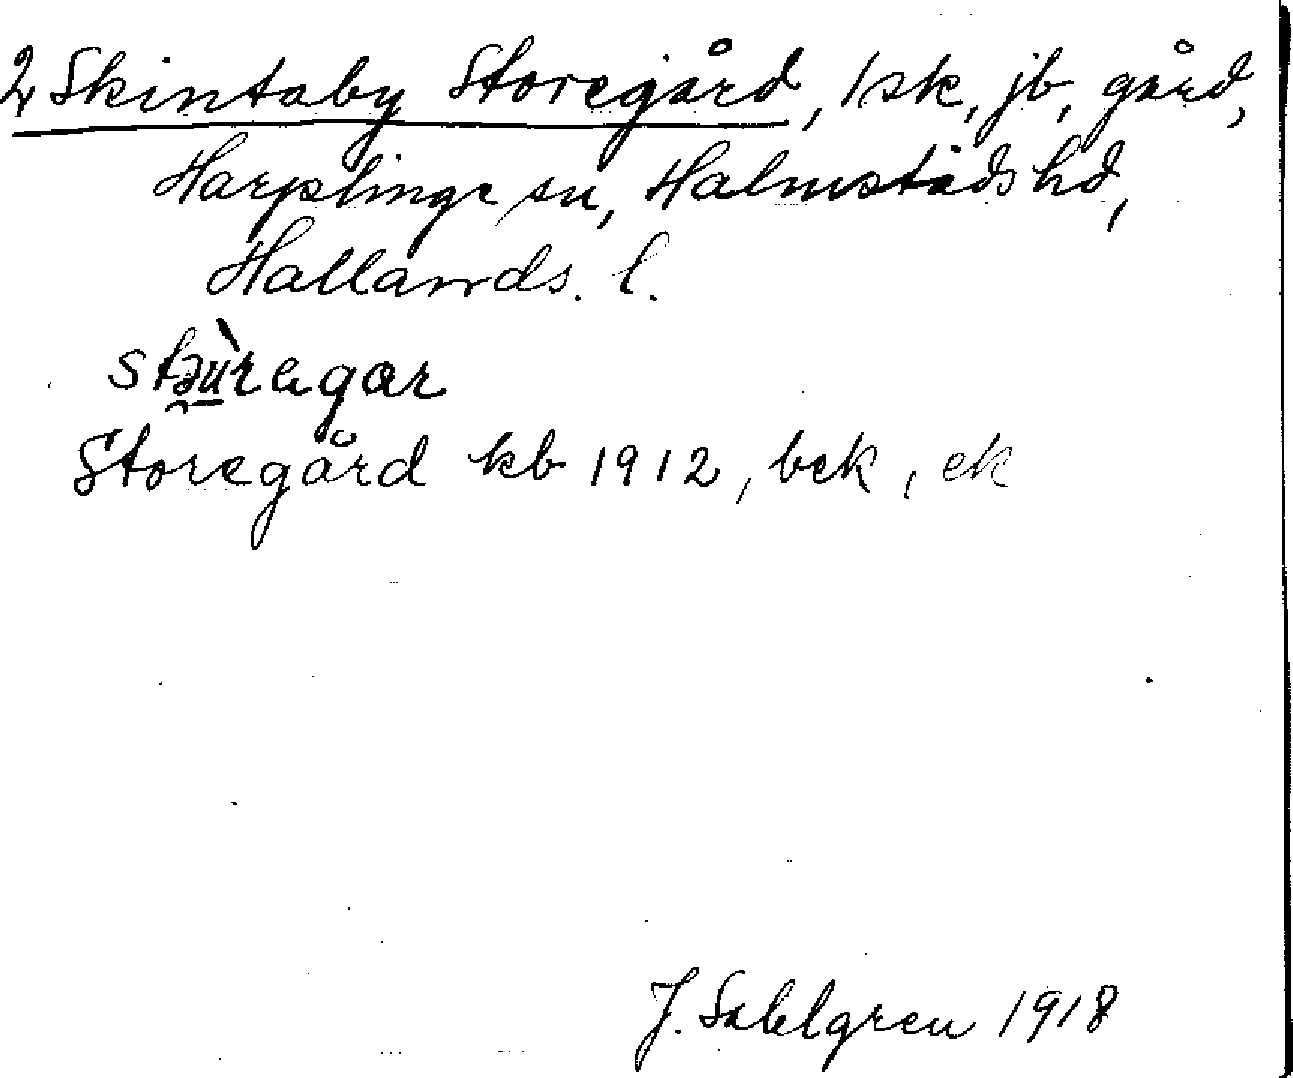 2 Skintaby Storegård, 1 sk, jb, gård,
Harplinge sn, Halmstads hd,
Hallands. l.
stəùragar
Storegård kb 1912, bek, ek
J. Sahlgren 1918